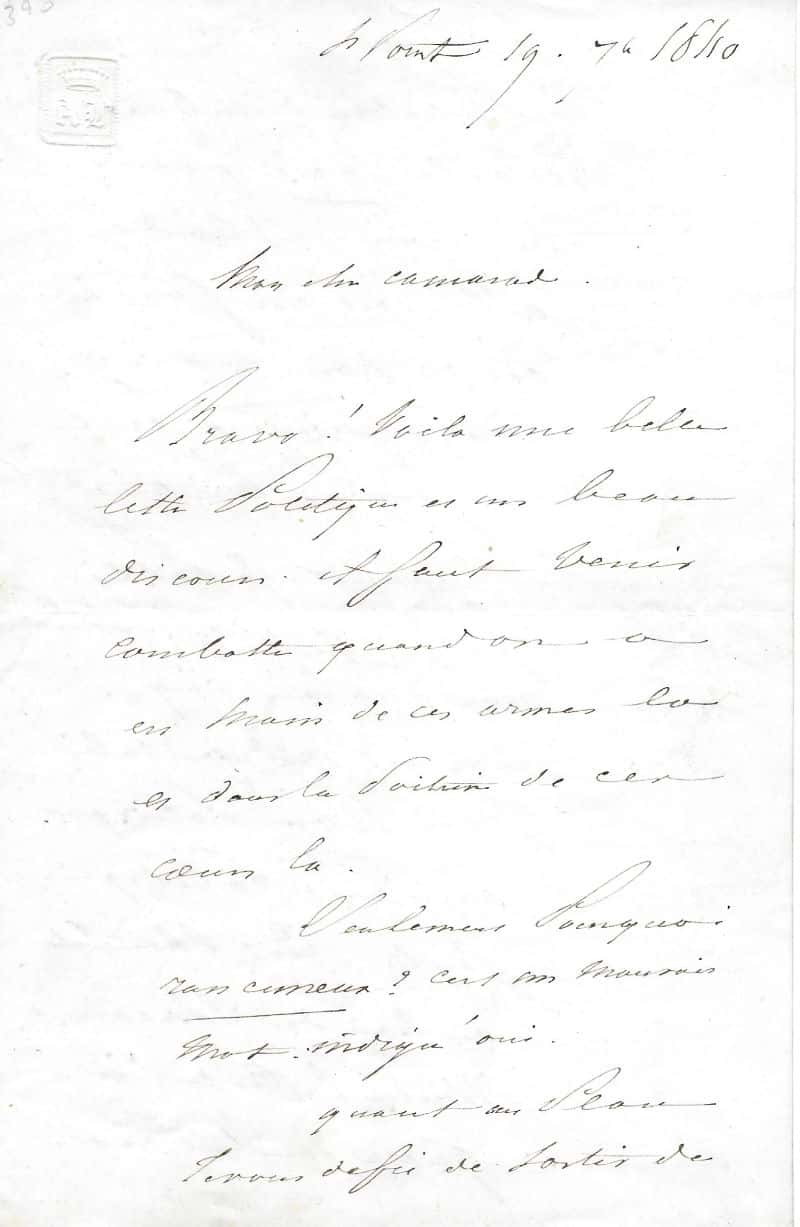 St Point 19. 7b 1840
Mon cher camarade.
Bravo! Voila une belle
lettre Politique et un beau
discours. Il faut Venir
combattre quand on a
en Main de ces armes la
et dans la Poitrine de ces
cœurs la.
Seulement Pourquoi
rancuneux? C'est un Mauvais
Mot. indigné oui.
quant au Plan
Je vous defie de Sortir de